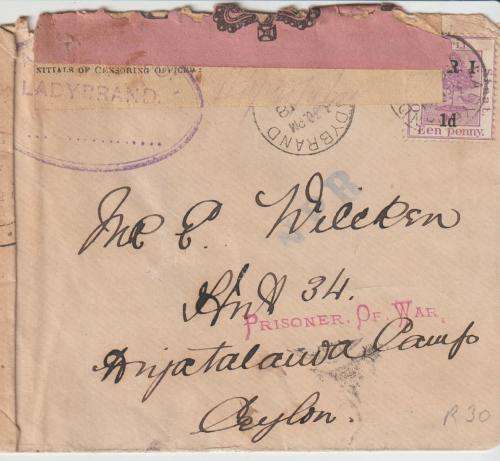 NITIALS OF CENSORING OFFICER:
LADYBRAND.
LADYBRAND
PM
R I
1d
Een penny.
Mr E. Wilcken
Hut 34.
PRISONER. OF WAR.
Diyatalawa Camp
Ceylon.
R 30